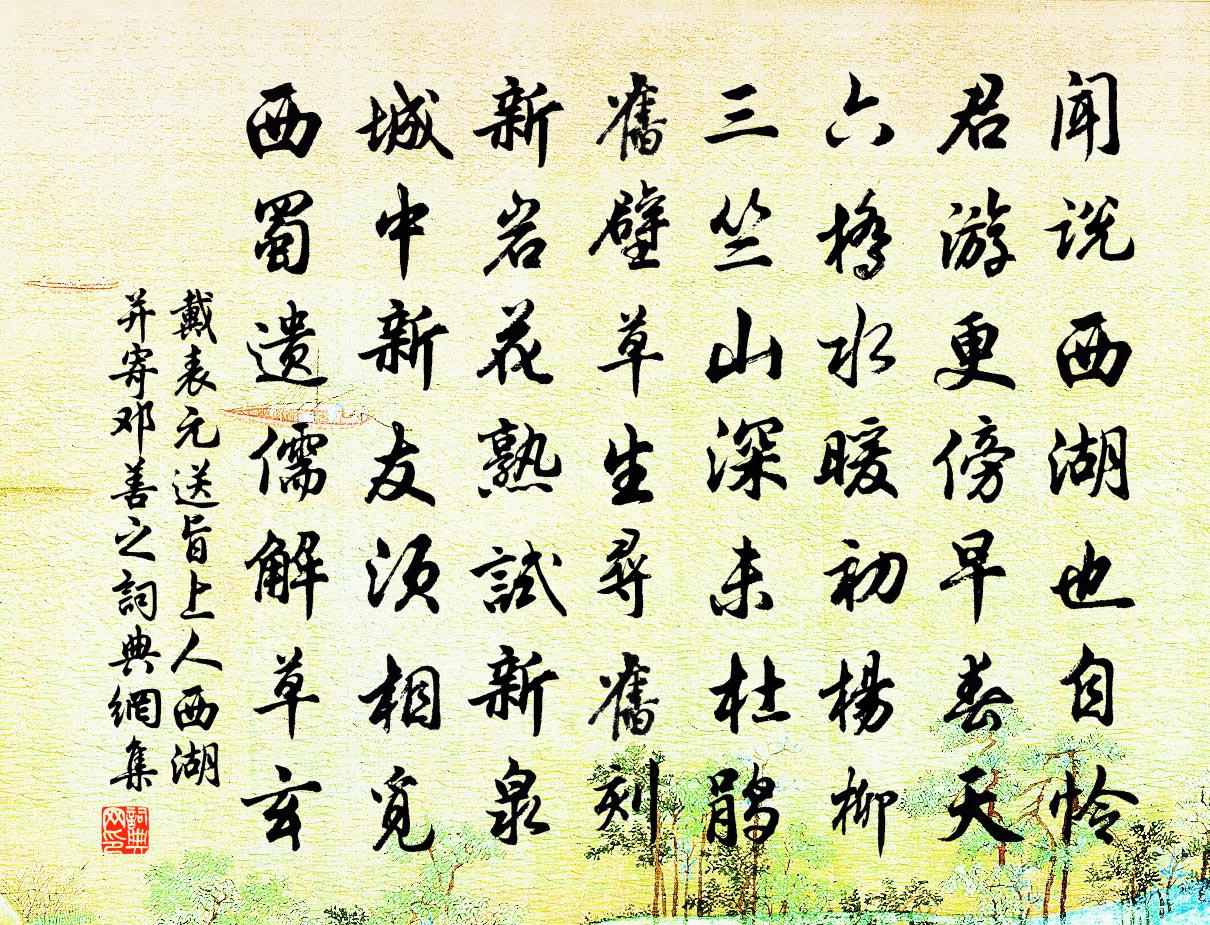 闻说西湖也自怜
君游更傍早春天
六橋水暖初楊柳
三竺山深未杜鹃
舊壁草生尋舊刻
新岩花熟試新泉
城中新友须相覓
西蜀遗儒解草玄
戴表元送旨上人西湖
并寄邓善之詞典網集
詞典网印